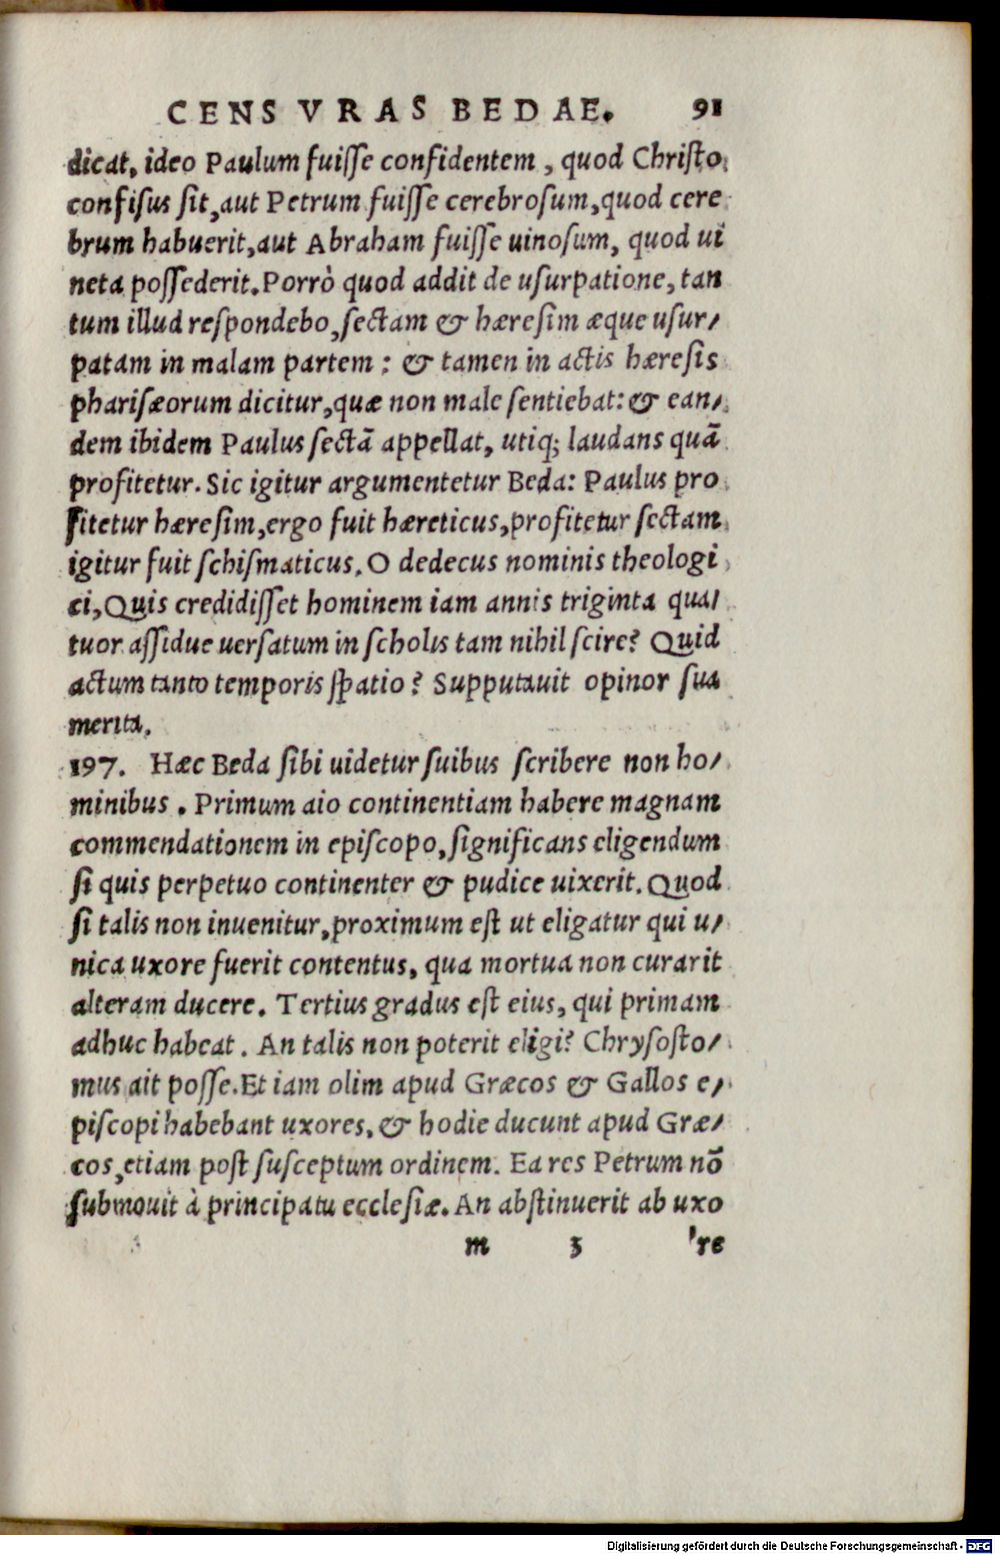 CENSVRAS BEDAE. 91
dicat, ideo Paulum fuisse confidentem, quod Christo
confisus sit, aut Petrum fuisse cerebrosum, quod cere
brum habuerit, aut Abraham fuisse uinosum, quod ui
neta possederit. Porrò quod addit de usurpatione, tan
tum illud respondebo, sectam & hæresim æque usur/
patam in malam partem: & tamen in actis hæresis
pharisæorum dicitur, quæ non male sentiebat: & ean/
dem ibidem Paulus sectā appellat, utiq; laudans quā
profitetur. Sic igitur argumentetur Beda: Paulus pro
fitetur hæresim, ergo fuit hæreticus, profitetur sectam
igitur fuit schismaticus. O dedecus nominis theologi
ci, Quis credidisset hominem iam annis triginta qua/
tuor assidue uersatum in scholis tam nihil scire? Quid
actum tanto temporis spatio? Supputauit opinor sua
merita.
197. Hæc Beda sibi uidetur suibus scribere non ho/
minibus. Primum aio continentiam habere magnam
commendationem in episcopo, significans eligendum
si quis perpetuo continenter & pudice uixerit. Quod
si talis non inuenitur, proximum est ut eligatur qui u/
nica uxore fuerit contentus, qua mortua non curarit
alteram ducere. Tertius gradus est eius, qui primam
adhuc habeat. An talis non poterit eligi? Chrysosto/
mus ait posse. Et iam olim apud Græcos & Gallos e/
piscopi habebant uxores, & hodie ducunt apud Græ/
cos, etiam post susceptum ordinem. Ea res Petrum nō
submouit à principatu ecclesiæ. An abstinuerit ab uxo
m 3 re
Digitalisierung gefördert durch die Deutsche Forschungsgemeinschaft - DFG